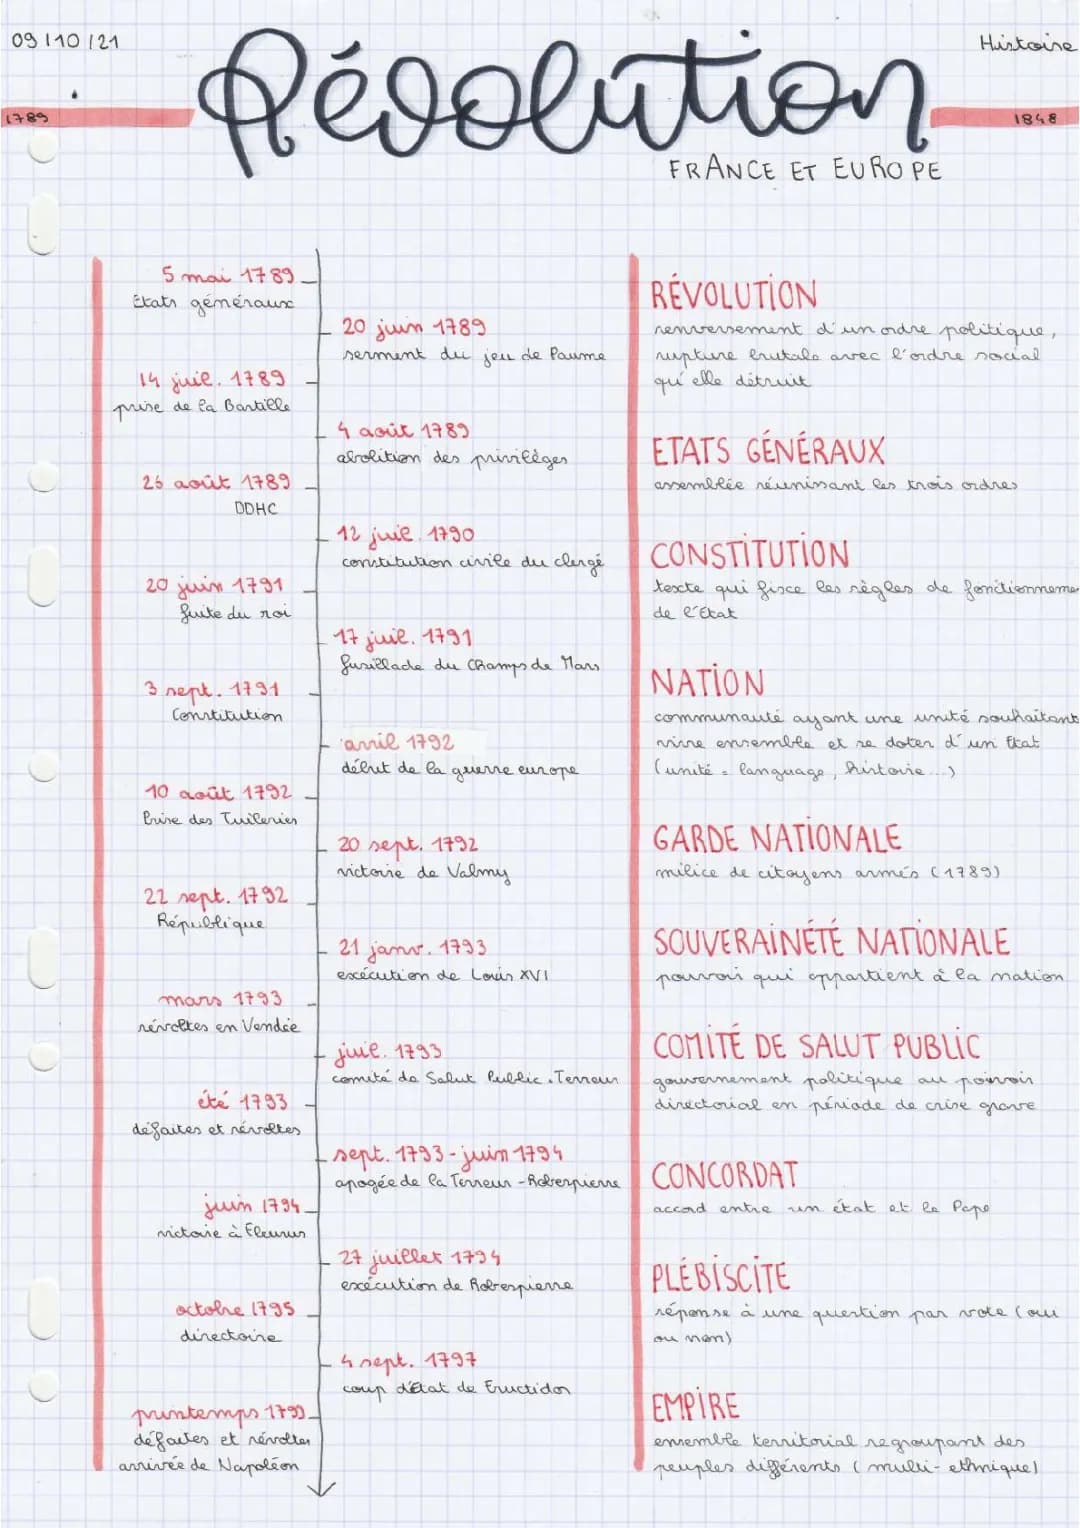 09/10/21
Histoire
Révolution
1789
1848
FRANCE ET EUROPE
5 mai 1789
États généraux
20 juin 1789
serment du jeu de Paume
14 juil. 1789
prise de la Bastille
4 août 1789
abolition des privilèges
26 août 1789
DDHC
12 juil. 1790
constitution civile du clergé
20 juin 1791
fuite du roi
17 juil. 1791
fusillade du Champs de Mars
3 sept. 1791
Constitution
avril 1792
début de la guerre europe
10 août 1792
Prise des Tuileries
20 sept. 1792
victoire de Valmy
22 sept. 1792
République
21 janv. 1793
exécution de Louis XVI
mars 1793
révoltes en Vendée
juil. 1793
comité de Salut Public. Terreur
été 1793
défaites et révoltes
sept. 1793 - juin 1794
apogée de la Terreur - Roberpierre
juin 1794
victoire à Fleurus
27 juillet 1794
exécution de Roberpierre
octobre 1795
directoire
4 sept. 1797
coup d'État de Fructidor
printemps 1799
défaites et révoltes
arrivée de Napoléon
RÉVOLUTION
renversement d'un ordre politique,
rupture brutale avec l'ordre social
qu'elle détruit
ETATS GÉNÉRAUX
assemblée réunissant les trois ordres
CONSTITUTION
texte qui fixe les règles de fonctionneme
de l'État
NATION
communauté ayant une unité souhaitant
vivre ensemble et se doter d'un État
(unité = language, histoire...)
GARDE NATIONALE
milice de citoyens armés (1789)
SOUVERAINÉTÉ NATIONALE
pouvoir qui appartient à la nation
COMITÉ DE SALUT PUBLIC
gouvernement politique au pouvoir
directorial en période de crise grave
CONCORDAT
accord entre un état et le Pape
PLÉBISCITE
réponse à une question par vote (oui
ou non)
EMPIRE
ensemble territorial regroupant des
peuples différents (multi-ethnique)